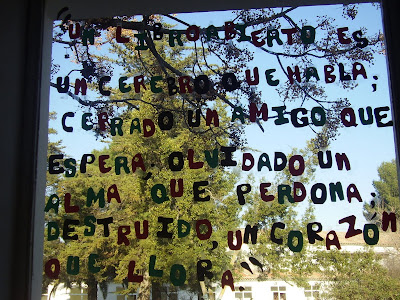 "UN LIBRO ABIERTO ES
UN CEREBRO QUE HABLA;
CERRADO UN AMIGO QUE
ESPERA, OLVIDADO UN
ALMA QUE PERDONA;
DESTRUIDO, UN CORAZÓN
QUE LLORA."